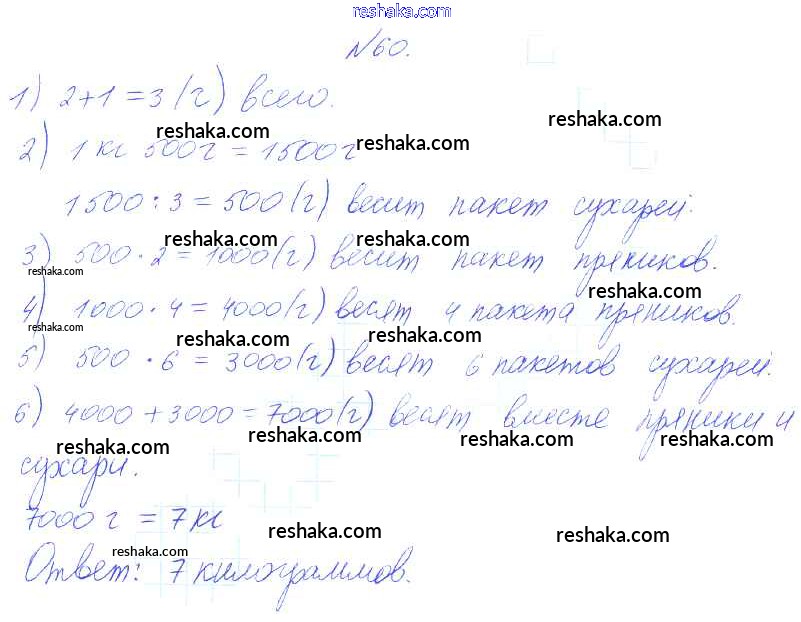 reshaka.com
№60.
1) 2+1=3 (г) всего.
reshaka.com
reshaka.com
2) 1 кг 500г = 1500г
reshaka.com
1500 : 3 = 500 (г) весит пакет сухарей.
reshaka.com
reshaka.com
3) 500 · 2 = 1000 (г) весит пакет пряников.
reshaka.com
reshaka.com
4) 1000 · 4 = 4000 (г) весят 4 пакета пряников.
reshaka.com
reshaka.com
reshaka.com
5) 500 · 6 = 3000 (г) весят 6 пакетов сухарей.
6) 4000 + 3000 = 7000 (г) весят вместе пряники и
reshaka.com
reshaka.com
reshaka.com
reshaka.com
сухари.
7000 г = 7 кг
reshaka.com
reshaka.com
reshaka.com
Ответ: 7 килограммов.